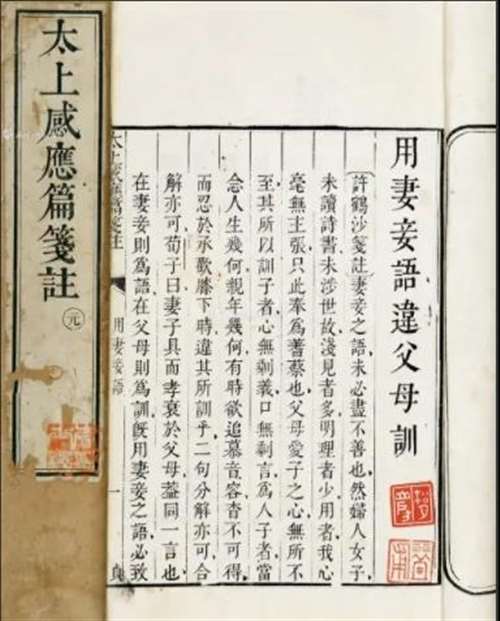 太上感應篇箋註
元
用妻妾語違父母訓
許鶴沙箋註妻妾之語未必盡不善也然婦人女子
未讀詩書未涉世故淺見者多明理者少用者我心
毫無主張只此奉爲蓍蔡也父母愛子之心無所不
至其所以訓子者心無剩義口無剩言爲人子者當
念人生幾何親年幾何有時欲追慕音容杳不可得
而忍於承歡膝下時違其所訓乎二句分解亦可合
解亦可荀子曰妻子具而孝衰於父母葢同一言也
在妻妾則爲語在父母則爲訓旣用妻妾之語必致
太上感應篇箋註 用妻妾語 一